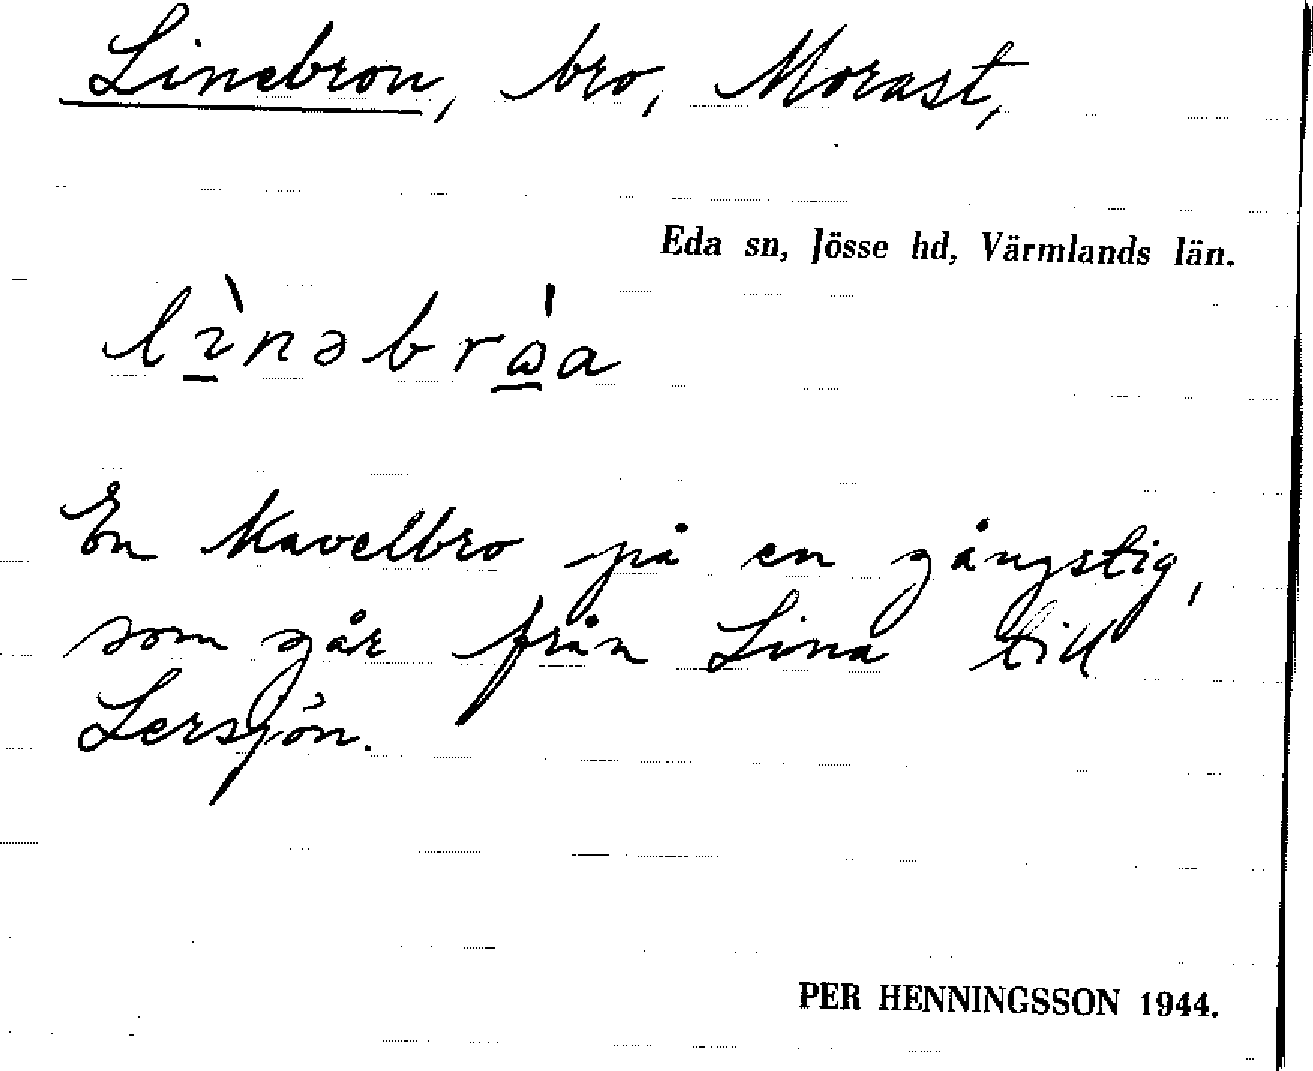 Linebron, bro, Morast,
Eda sn, Jösse hd, Värmlands län.
lìnəbrɷ́a
En kavelbro på en gångstig,
som går från Lina till
Lersjön.
PER HENNINGSSON 1944.